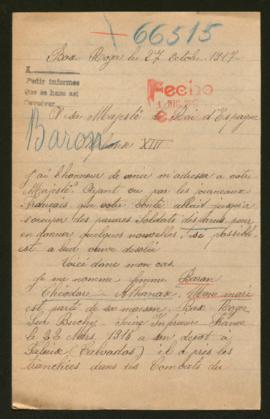 66515
Bois Roger le 27 Octobre 1917
Pedir informes
que se hace así
Fecho
A Sa Majesté le Roi d'Espagne
XIII
Baron
J'ai l'honneur de venir m'adresser à votre
Majesté Ayant vu par les journaux
français que votre bonté allait jusqu'à
s'occuper des pauvres Soldats disparus pour
en donner quelques nouvelles si possible
est a sur
Voici dans mon cas
je me nomme femme Baron
Théodore Athanase Mon mari
est partie de sa maison Bois Roger
sur Buchy Seine Inférieure France
le 22 Mars 1915 a son depot a
Falaise (Calvados) il a pris les
tranchées dans les Combats du